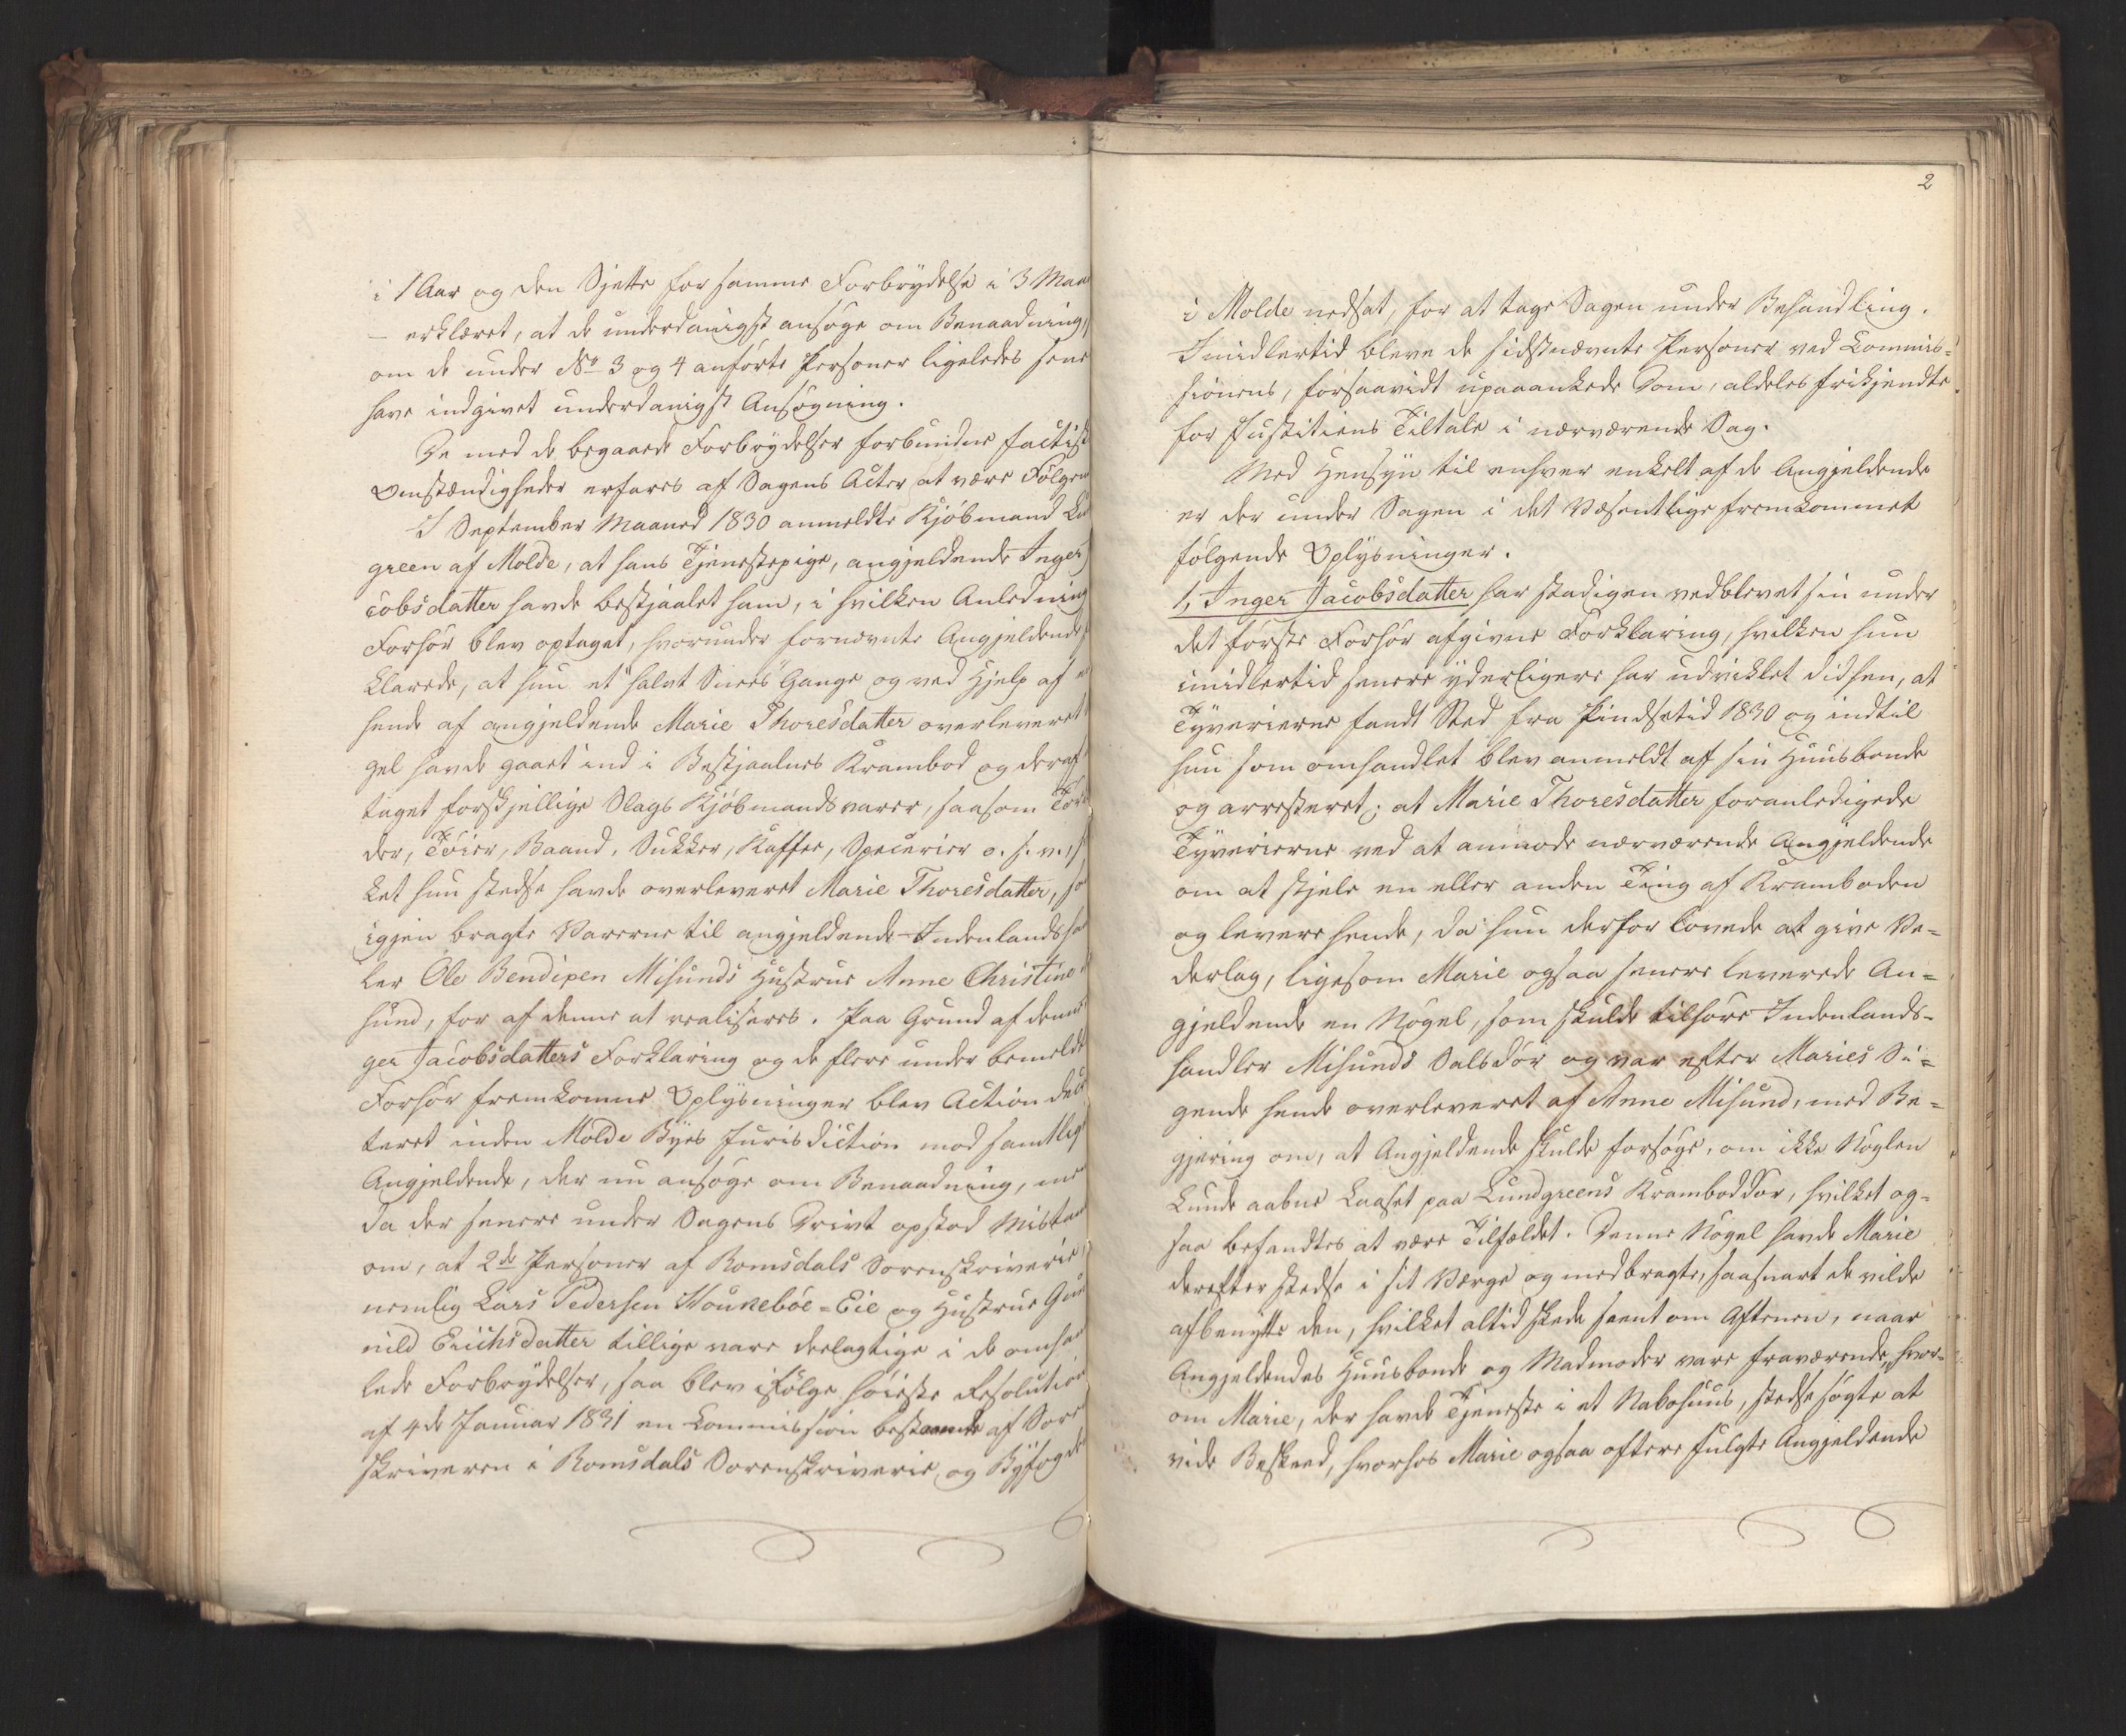 i 1 Aar og den Sjette for samme Forbrydelse i 3 Maa
– erklæret, at de underdanigst ansøge om Benaadning,
om de under No 3 og 4 anførte Personer ligeledes sene
have indgivet underdanigst Ansøgning.
De med de begaaede Forbrydelser forbundne factisk
Omstændigheder erfares af Sagens Acter at være Følgen
I September Maaned 1830 anmeldte Kjøbmand Lu
green af Molde, at hans Tjenestepige, angjeldende Inger
cobsdatter havde bestjaalet ham, i hvilken Anledning
Forhør blev optaget, hvorunder fornævnte Angjeldende
klarede, at hun et halvt Snees Gange og ved Hjelp af e
hende af angjeldende Marie Thoresdatter overleveret
gel havde gaaet ind i Bestjaalnes Krambod og deraf
taget forskjellige Slags Kjøbmandsvarer, saasom Tør
der, Tøier, Baand, Sukker, Kaffee, Specerier o. s. v., h
ket hun stedse havde overleveret Marie Thoresdatter, so
igjen bragte Varerne til angjeldende Indenlandsha
ler Ole Bendixen Misunds Hustrue Anne Christine
sund, for af denne at realiseres. Paa Grund af denne
ger Jacobsdatters Forklaring og de flere under bemeldt
Forhør fremkomne Oplysninger blev Action dec
teret inden Molde Byes Jurisdiction mod samtlig
Angjeldende, der nu ansøge om Benaadning, me
da der senere under Sagens Drivt opstod Mistan
om, at 2de Personer af Romsdals Sorenskriverie,
nemlig Lars Pedersen Houkebøe-Eie og Hustrue Gun
nild Erichsdatter tillige vare deelagtige i de omhan
lede Forbrydelser, saa blev ifølge høieste Resolution
af 4de Januar 1831 en Commission bestaaende af Sore
skriveren i Romsdals Sorenskriverie og Byfoged
2
i Molde nedsat, for at tage Sagen under Behandling.
Imidlertid bleve de sidstnævnte Personer ved Commis=
sionens, forsaavidt upaaankede Dom, aldeles frikjendte
for Justitiens Tiltale i nærværende Sag.
Med Hensyn til enhver enkelt af de Angjeldende
er der under Sagen i det Væsentlige fremkommet
følgende Oplysninger.
1, Inger Jacobsdatter har stadigen vedblevet sin under
det første Forhør afgivne Forklaring, hvilken hun
imidlertid senere yderligere har udviklet didhen, at
Tyverierne fandt Sted fra Pindsetid 1830 og indtil
hun som omhandlet blev anmeldt af sin Huusbonde
og arresteret; at Marie Thoresdatter foranledigede
Tyverierne ved at anmode nærværende Angjeldende
om at stjele en eller anden Ting af Kramboden
og levere hende, da hun derfor lovede at give Ve=
derlag, ligesom Marie ogsaa senere leverede An=
gjeldende en Nøgel, som skulde tilhøre Indenlands-
handler Misunds Salsdør og var efter Maries Si=
gende hende overleveret af Anne Misund, med Be=
gjering om, at Angjeldende skulde forsøge, om ikke Nøglen
kunde aabne Laaset paa Lundgreens Kramboddør, hvilket og=
saa befandtes at være Tilfældet. Denne Nøgel havde Marie
derefter stedse i sit Værge og medbragte, saasnart de vilde
afbenytte den, hvilket altid skede seent om Aftenen, naar
Angjeldendes Huusbonde og Madmoder vare fraværende, hvor=
om Marie, der havde Tjeneste i et Nabohuus, stedse søgte at
vide Beskeed, hvorhos Marie ogsaa oftere fulgte Angjeldende